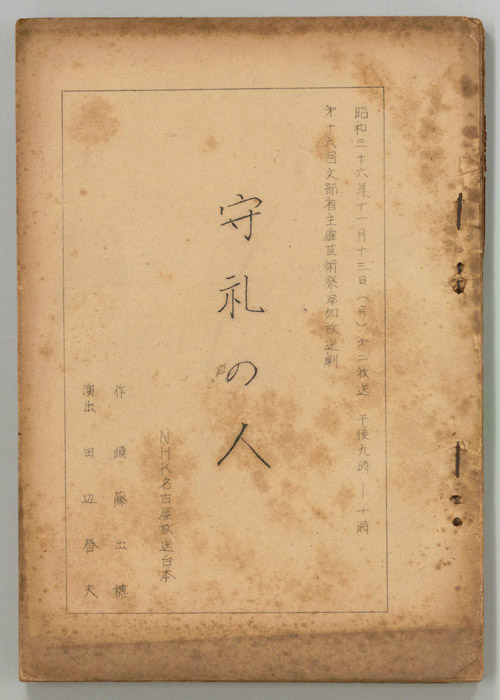 昭和三十六年十一月十三日(月)第二放送 午後九時―十時
第十六回文部省主催芸術祭参加放送劇
守礼の人
NHK名古屋放送台本
作 須藤出穂
演出 田辺啓夫